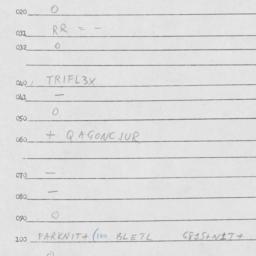 020 O
031 RR = -
032 O
040 TRIFL3X
041 -
O
050
+ QAGONCIUR
060
-
070
-
080
O
090
100 PARKNIT+ (100 BLETL 6815+N17+
O